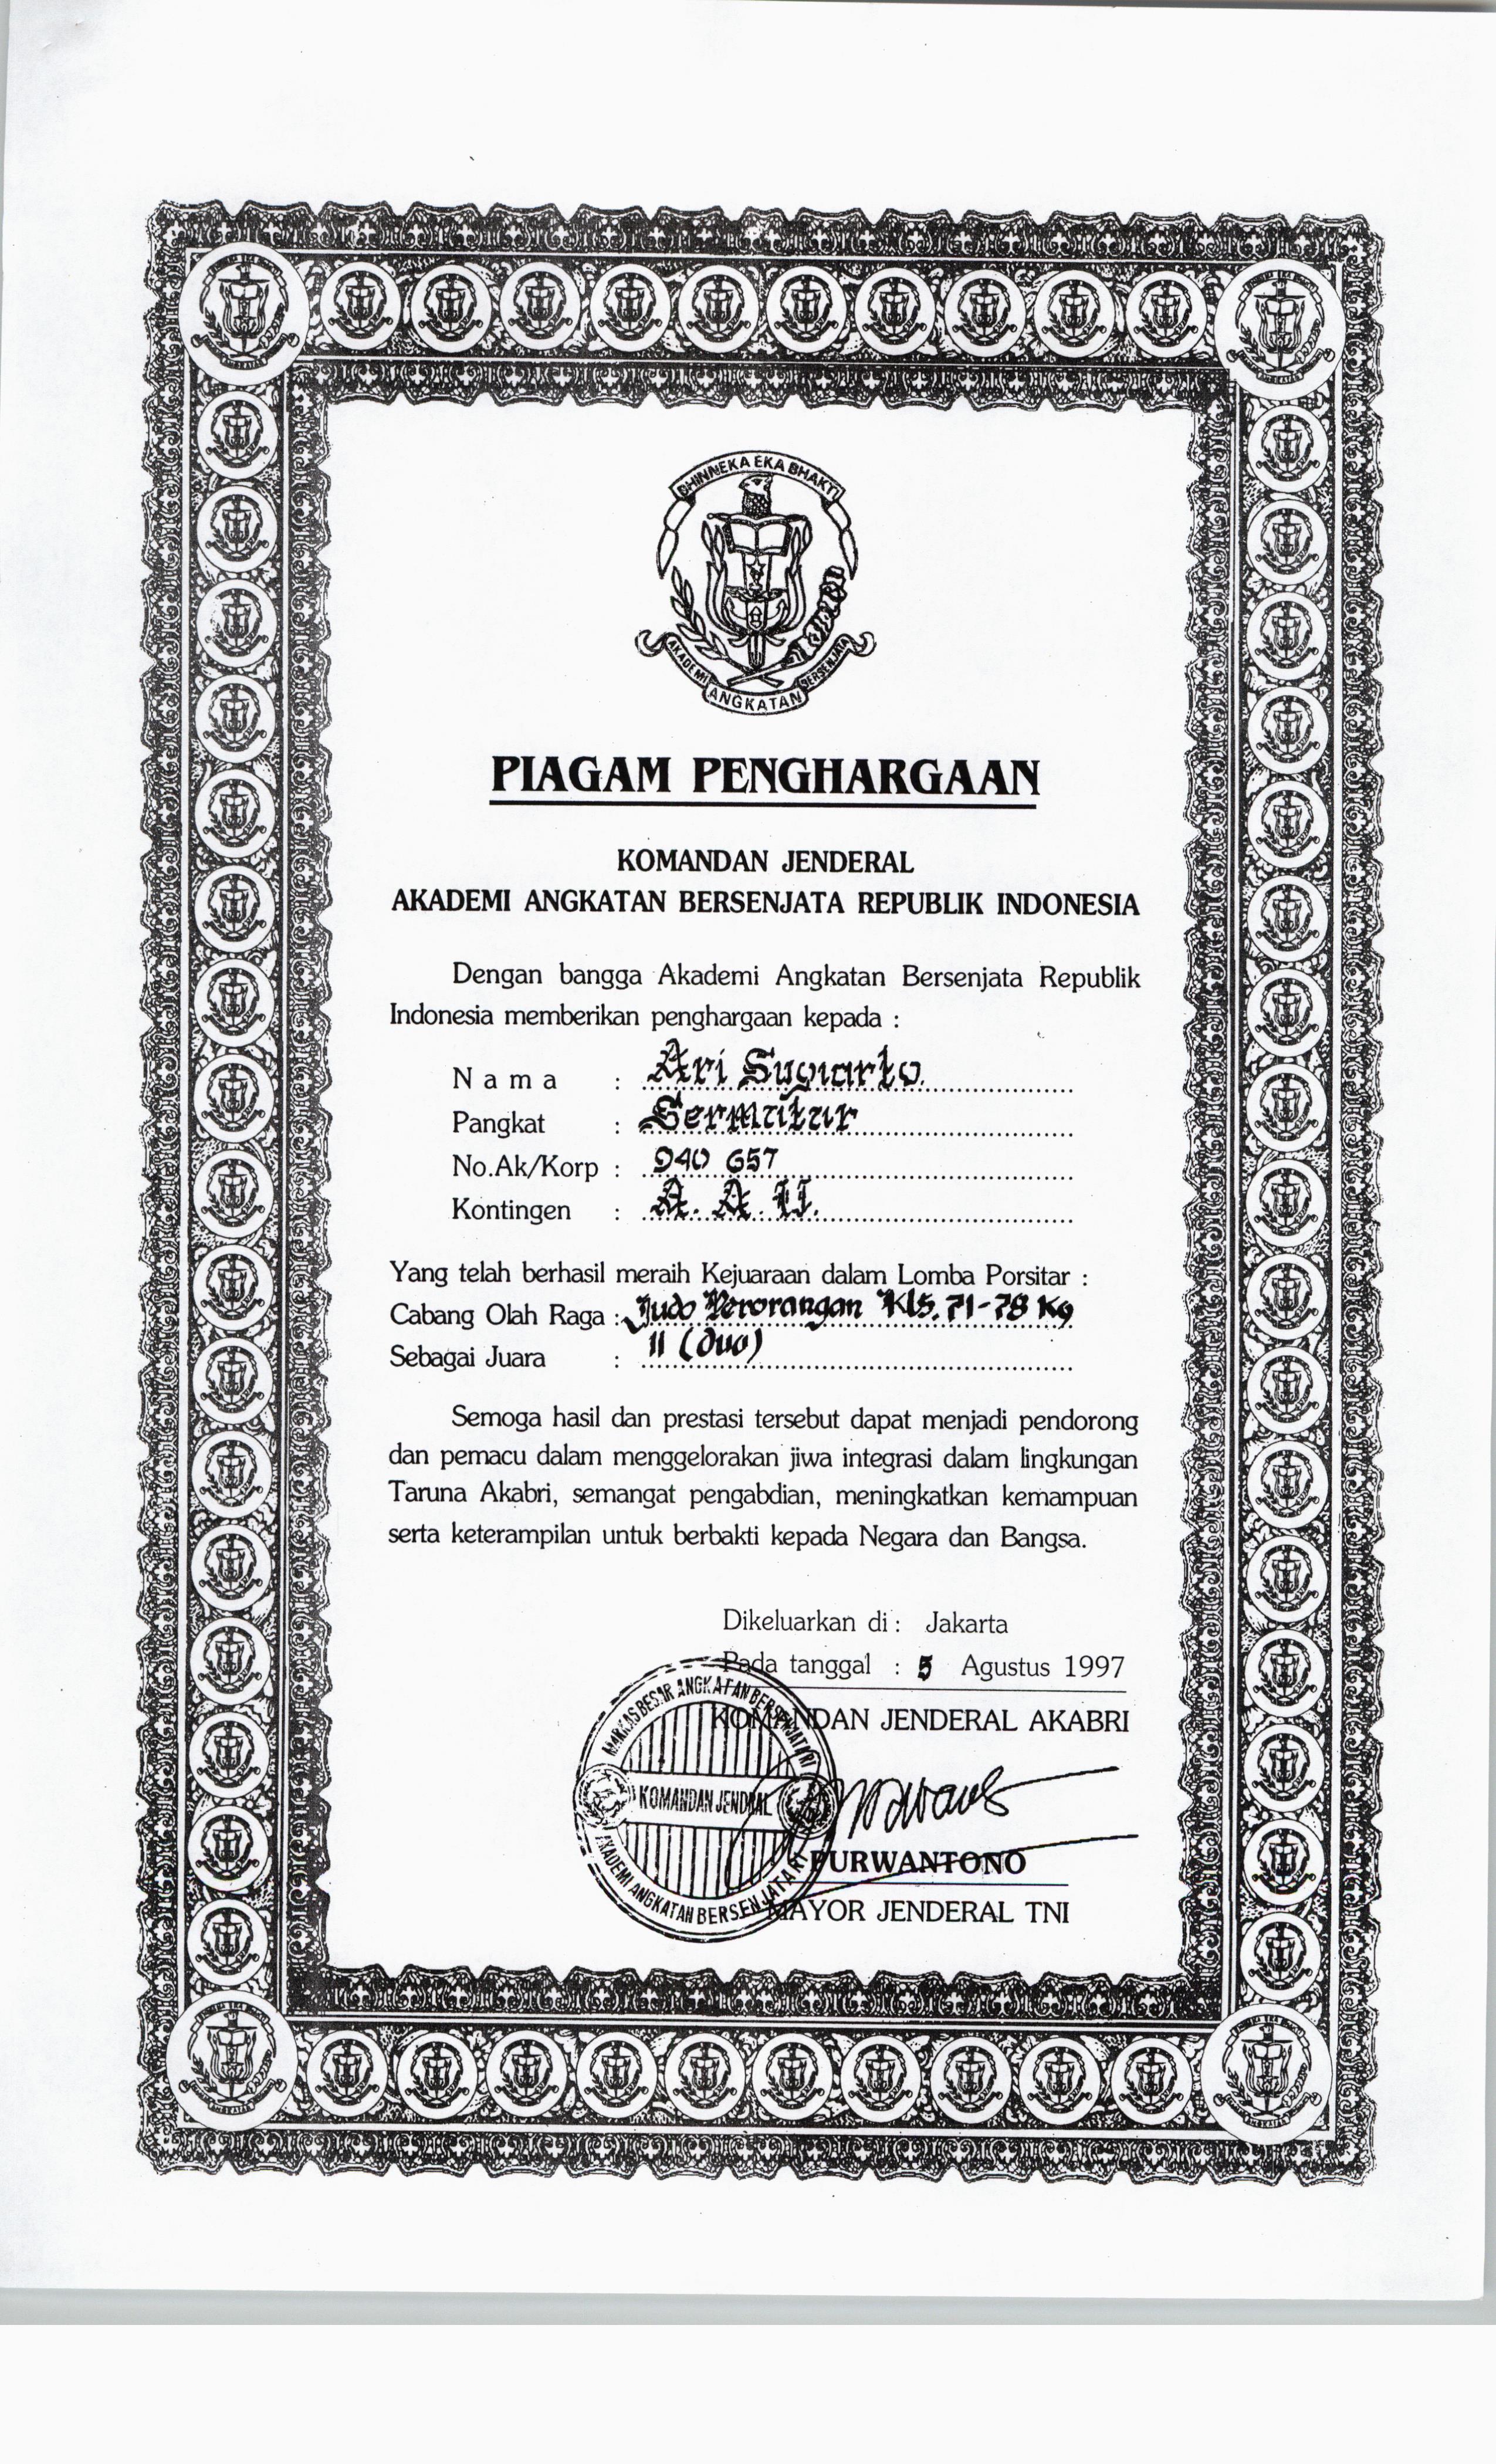 BHINNEKA EKA BHAKTI
AKADEMI ANGKATAN BERSENJATA
PIAGAM PENGHARGAAN
KOMANDAN JENDERAL
AKADEMI ANGKATAN BERSENJATA REPUBLIK INDONESIA
Dengan bangga Akademi Angkatan Bersenjata Republik
Indonesia memberikan penghargaan kepada :
Nama : Ari Sugiarto.
Pangkat : Sermatar
No.Ak/Korp : 940 657
Kontingen : A. A. U.
Yang telah berhasil meraih Kejuaraan dalam Lomba Porsitar :
Cabang Olah Raga : Judo Perorangan Kls. 71-78 Kg
Sebagai Juara : II (dua)
Semoga hasil dan prestasi tersebut dapat menjadi pendorong
dan pemacu dalam menggelorakan jiwa integrasi dalam lingkungan
Taruna Akabri, semangat pengabdian, meningkatkan kemampuan
serta keterampilan untuk berbakti kepada Negara dan Bangsa.
Dikeluarkan di : Jakarta
Pada tanggal : 5 Agustus 1997
KOMANDAN JENDERAL AKABRI
MARKAS BESAR ANGKATAN BERSENJATA RI
KOMANDAN JENDRAL
AKADEMI ANGKATAN BERSENJATA RI
PURWANTONO
MAYOR JENDERAL TNI